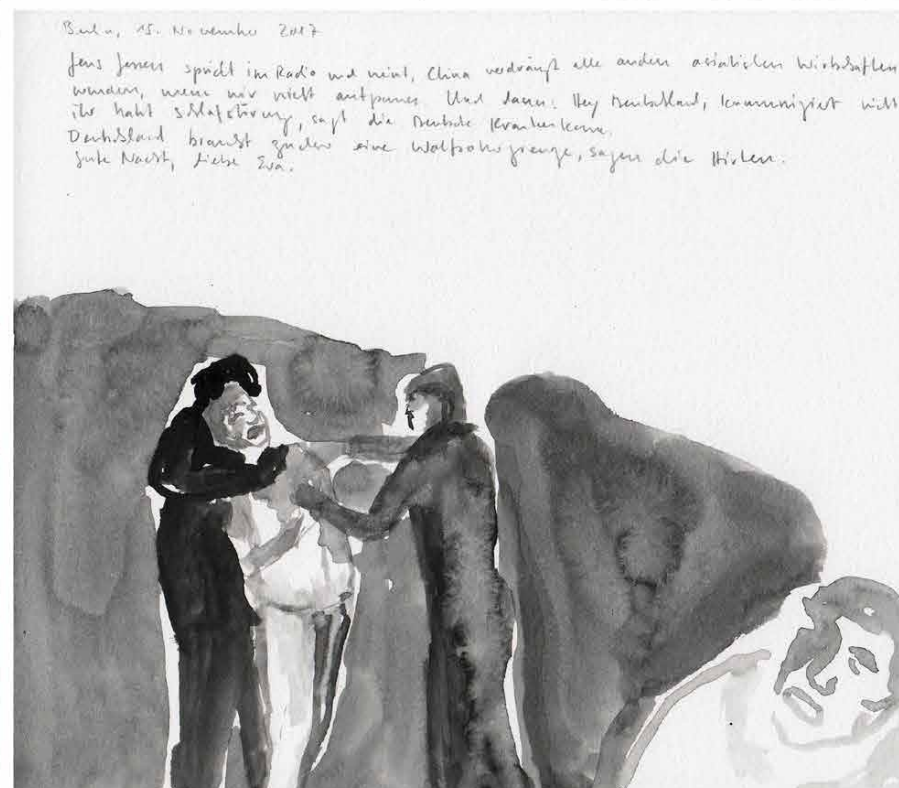 Berlin, 15. November 2017
Jens Jessen spricht im Radio und meint, China verdrängt alle andern asiatischen Wirtschaften
wenn wir nicht aufpassen. Und dann: Hey Deutschland,
ihr habt Schlafstörung, sagt die Deutsche Krankenkasse.
Deutschland braucht eine Wolfsobergrenze, sagen die Hirten.
Gute Nacht, liebe Eva.